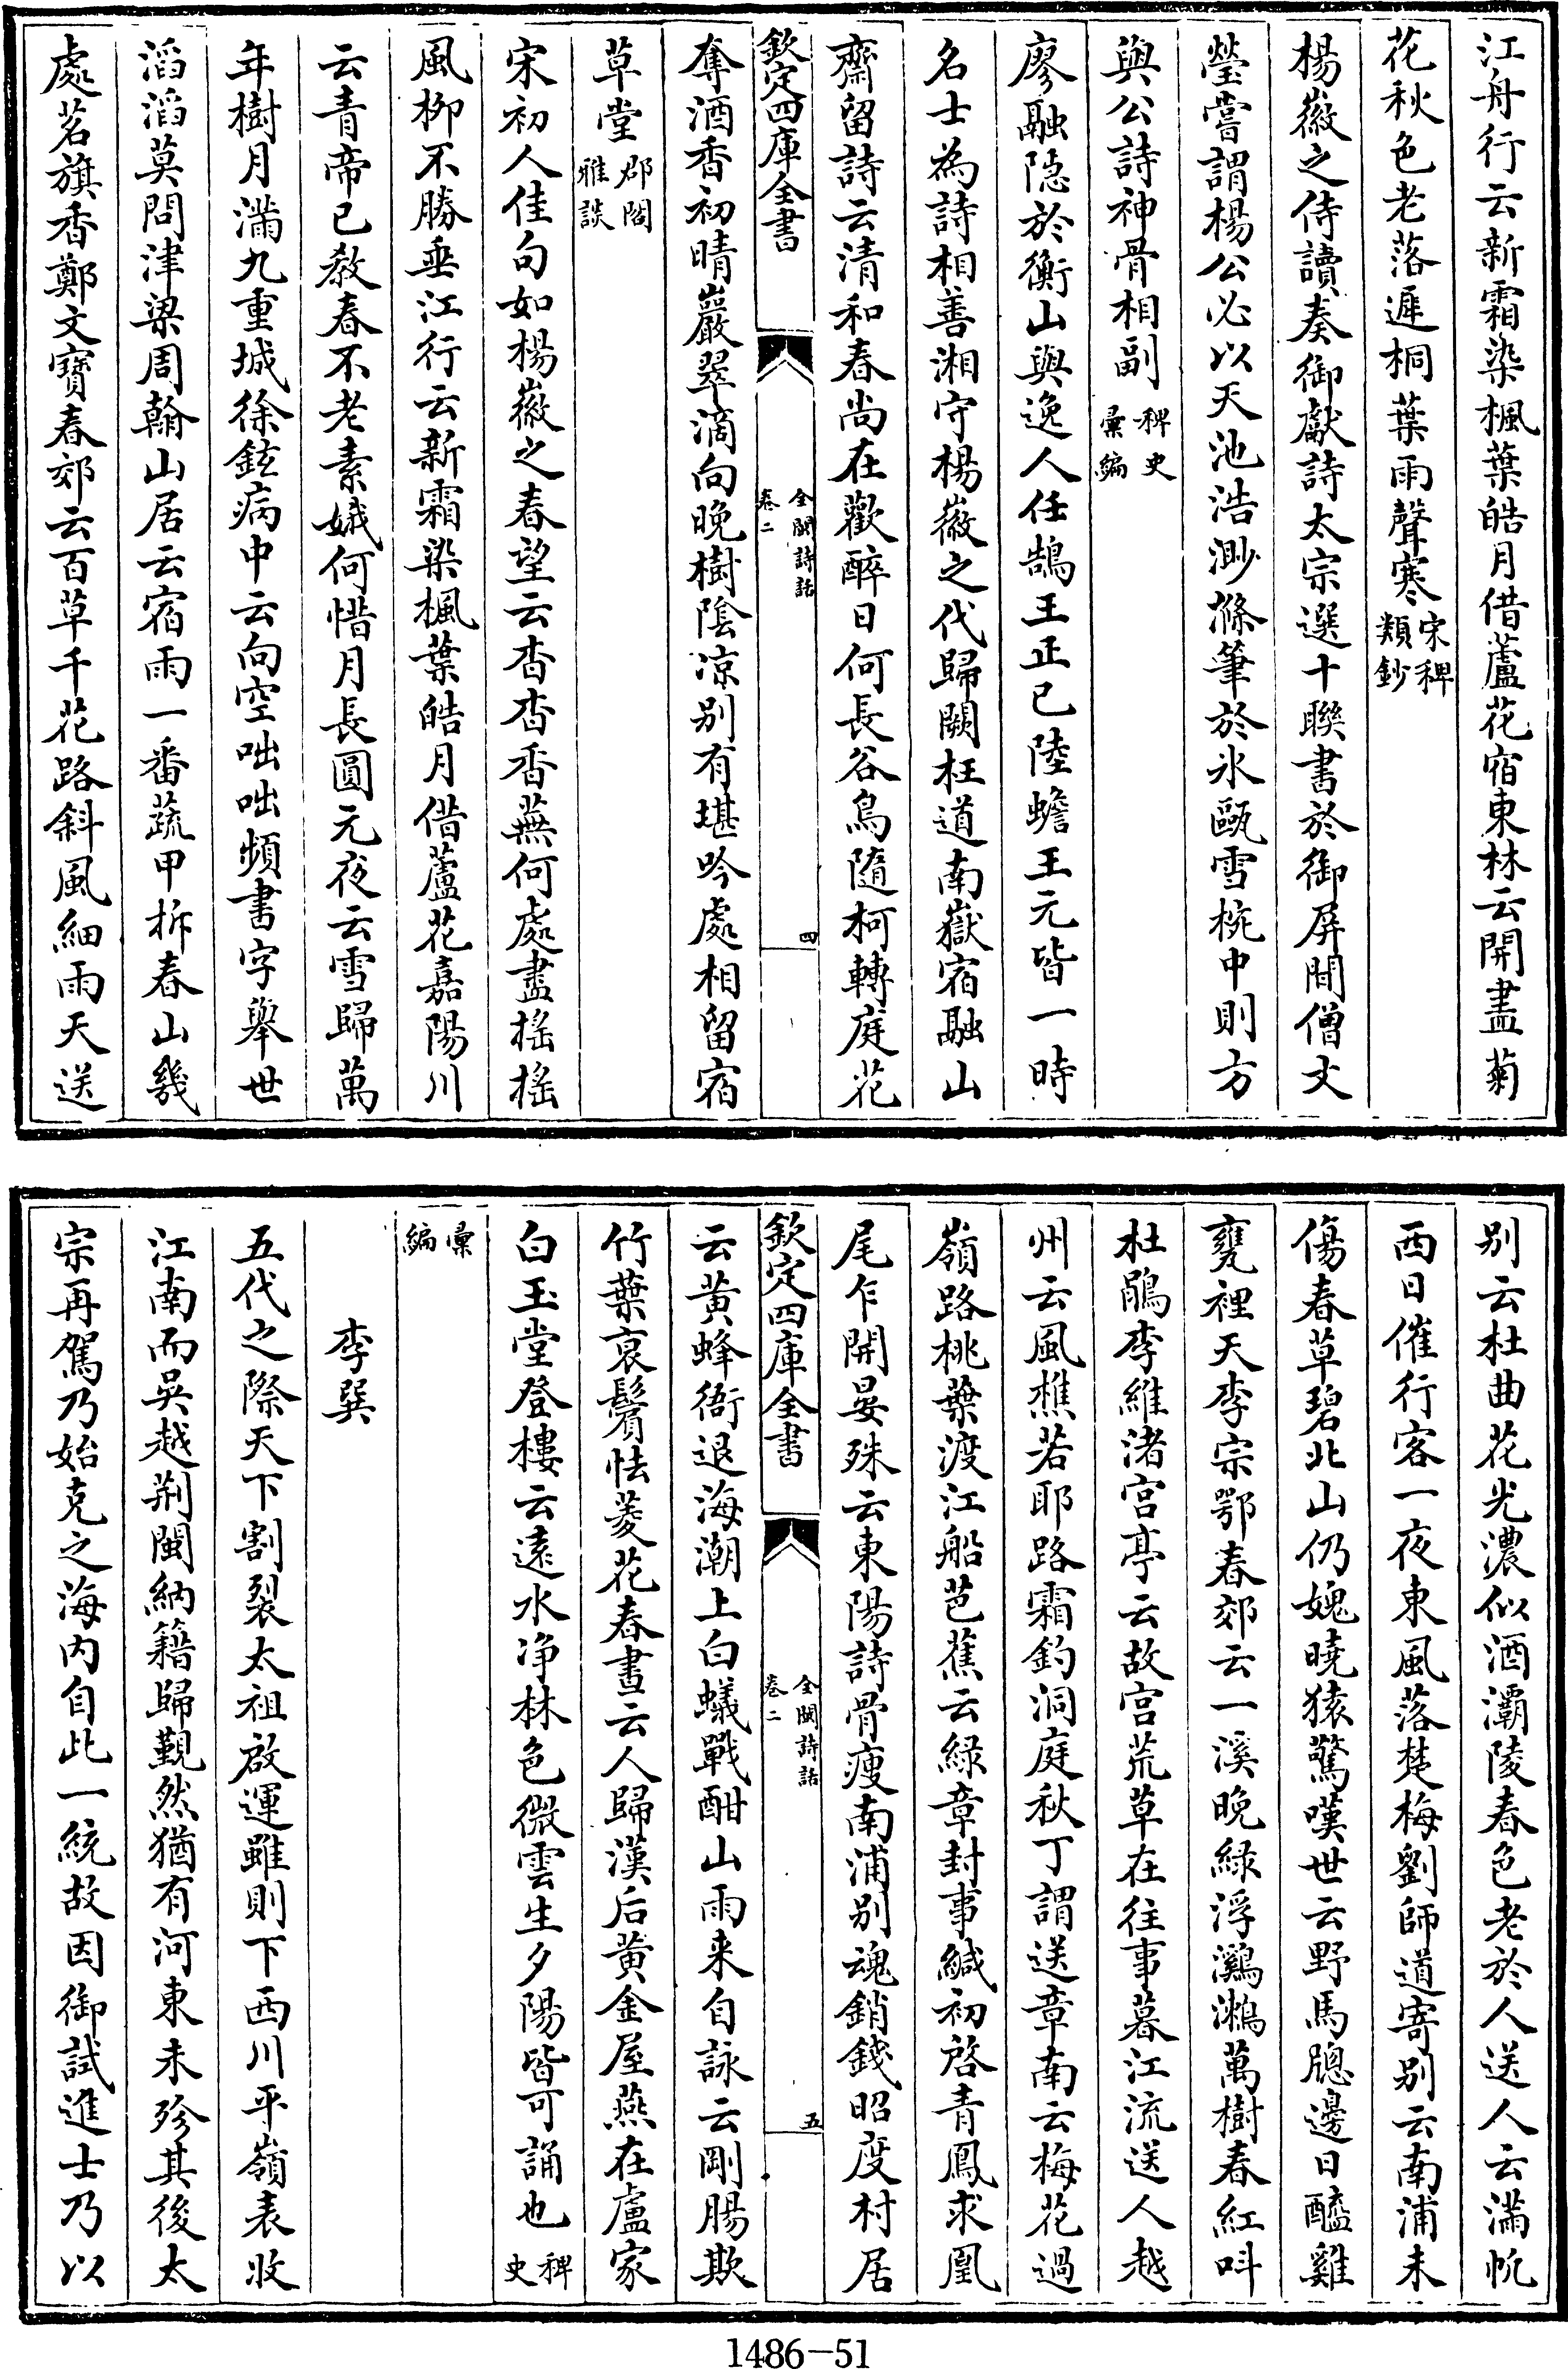 江舟行云新霜染楓葉皓月借蘆花宿東林云開盡菊
花秋色老落遲桐葉雨聲寒宋稗類鈔
楊徽之侍讀奏御獻詩太宗選十聯書於御屏間僧文
瑩嘗謂楊公必以天池浩渺滌筆於氷甌雪椀中則方
與公詩神骨相副稗史彙編
廖融隐於衡山與逸人任鵠王正已陸蟾王元皆一時
名士為詩相善湘守楊徽之代歸闕枉道南嶽宿融山
齋留詩云清和春尚在歡醉日何長谷鳥隨柯轉庭花
欽定四庫全書
全閩詩話
卷二
四
奪酒香初晴巖翠滴向晚樹陰凉别有堪吟處相留宿
草堂郡閣雅談
宋初人佳句如楊徽之春望云杳杳香蕪何處盡摇摇
風柳不勝垂江行云新霜染楓葉皓月借蘆花嘉陽川
云青帝已教春不老素娥何惜月長圓元夜云雪歸萬
年樹月滿九重城徐鉉病中云向空咄咄頻書字舉世
滔滔莫問津梁周翰山居云宿雨一番蔬甲柝春山幾
處茗旗香鄭文寶春郊云百草千花路斜風細雨天送
别云杜曲花光濃似酒灞陵春色老於人送人云滿帆
西日催行客一夜東風落楚梅劉師道寄别云南浦未
傷春草碧北山仍媿曉猿驚嘆世云野馬牕邊日醯雞
甕裡天李宗鄂春郊云一溪晩緑浮鸂鶒萬樹春紅呌
杜鵑李維渚宫亭云故宫荒草在往事暮江流送人越
州云風樵若耶路霜釣洞庭秋丁謂送章南云梅花過
嶺路桃葉渡江船芭蕉云緑章封事緘初啓青鳳求凰
尾乍開晏殊云東陽詩骨瘦南浦别魂銷錢昭度村居
欽定四庫全書
全閩詩話
卷二
五
云黄蜂衙退海潮上白蟻戰酣山雨来自詠云剛腸欺
竹葉衰鬢怯菱花春晝云人歸漢后黄金屋燕在盧家
白玉堂登樓云遠水净林色微雲生夕陽皆可誦也稗史
彙編
李巽
五代之際天下割裂太祖啟運雖則下西川平嶺表收
江南而吳越荆閩納籍歸覲然猶有河東未殄其後太
宗再駕乃始克之海内自此一統故因御試進士乃以
1486-51